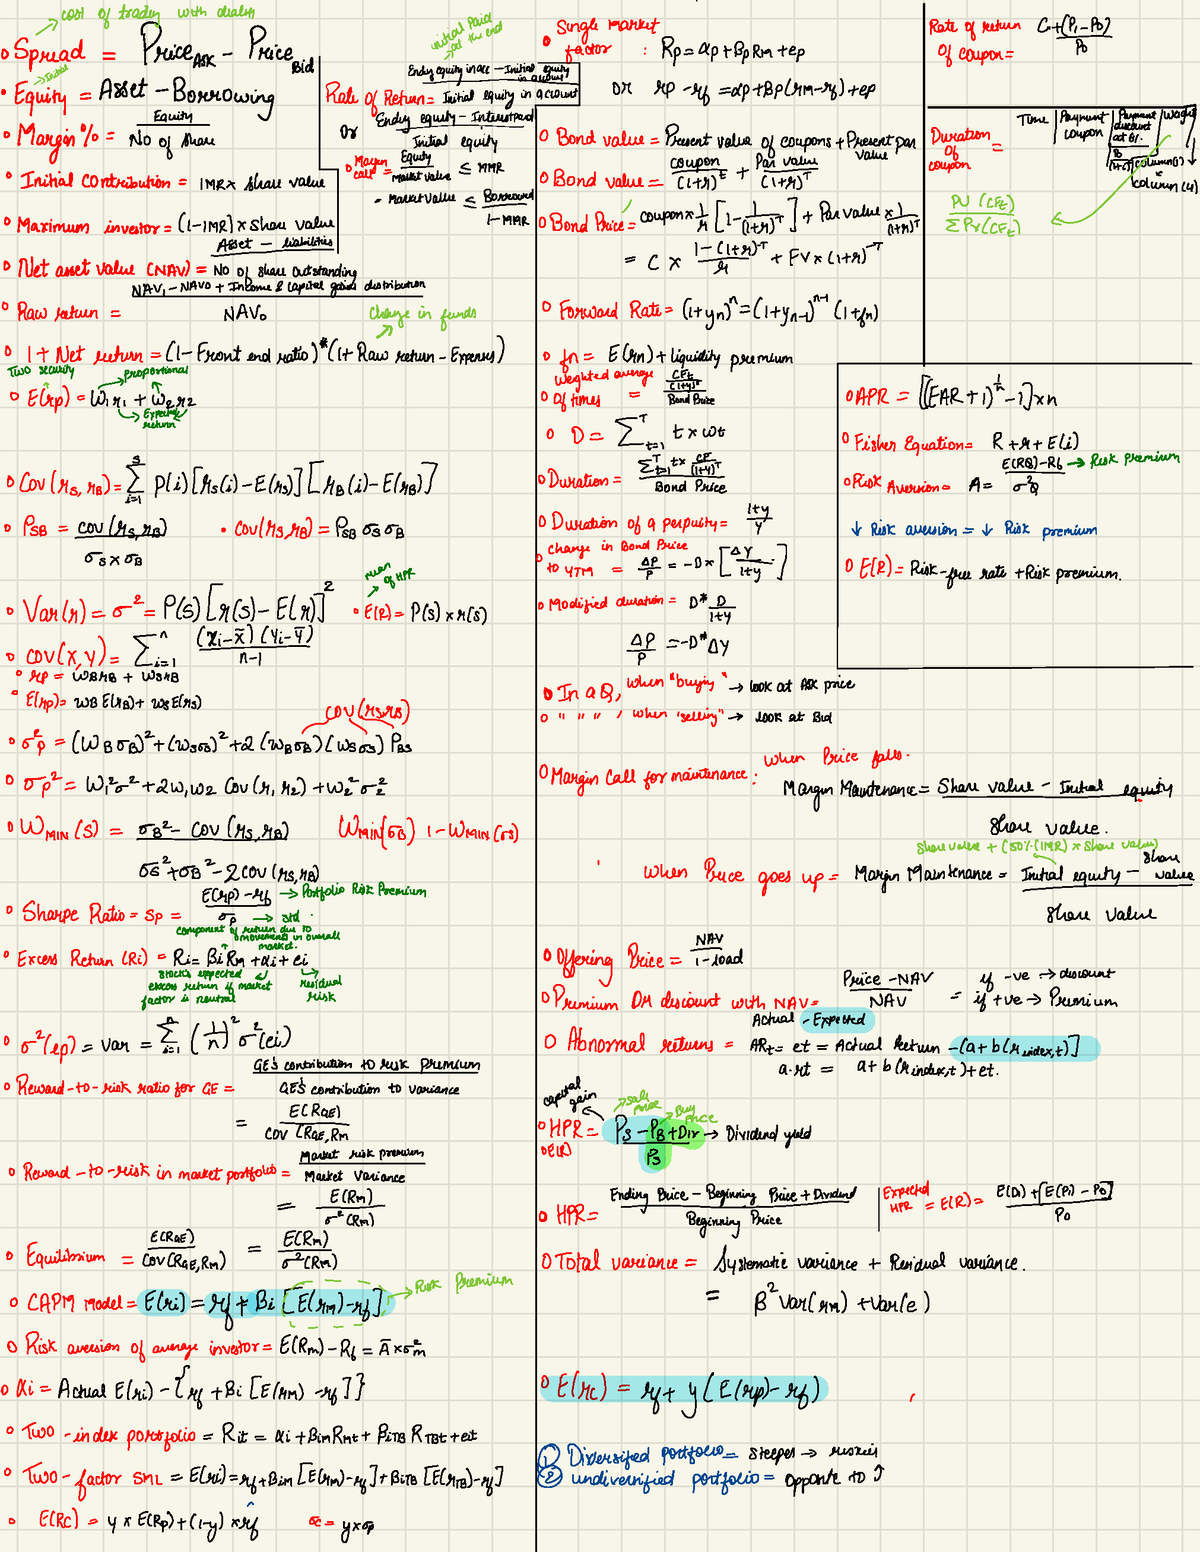 cost of trading with dealers
○ Spread = Price ASK - Price Bid
Initial
• Equity = Asset - Borrowing
• Margin % = Equity / No of share
• Initial Contribution = IMR x share value
• Maximum investor = (1-IMR) x Share value
○ Net asset value (NAV) = Asset - liabilities / No of share Outstanding
○ Raw return = NAV₁ - NAV₀ + Income & Capital gains distribution / NAV₀
Change in funds
○ 1 + Net return = (1 - Front end ratio) * (1 + Raw return - Expenses)
Two security
proportional
○ E(rp) = w₁r₁ + w₂r₂
Expected return
initial paid at the end
Rate of Return = Ending equity in acc - Initial equity in account / Initial equity in account
Or Ending equity - Interest paid / Initial equity
○ Margin call = Equity / Market value ≤ MMR
- Market Value ≤ Borrowed / 1-MMR
○ Cov(rs, rB) = Σ i=1 s P(i)[rs(i) - E(rs)][rB(i) - E(rB)]
○ PSB = cov(rs, rB) / σs x σB
• Cov(rs, rB) = PSB σs σB
mean of HPR
○ Var(r) = σ² = P(s)[r(s) - E(r)]²
• E(R) = P(s) x r(s)
○ Cov(x, y) = Σ i=1 n (xi - x̄)(yi - ȳ) / n-1
○ rp = wBrB + wsrB
○ E(rp) = wB E(rB) + ws E(rs)
cov(rs,rB)
○ σ²p = (wBσB)² + (wsσs)² + 2(wBσB)(wsσs) PBS
○ σp² = w₁²σ² + 2w₁w₂ Cov(r₁ r₂) + w₂² σ₂²
○ WMIN(S) = σB² - Cov(rs, rB) / σs² + σB² - 2Cov(rs, rB)
WMIN(σB) 1 - WMIN(σs)
○ Sharpe Ratio = Sp = E(rp) - rf / σp
→ Portfolio Risk Premium
→ std
component of return due to movements in overall market.
○ Excess Return (Ri) = Ri = Bi Rm + αi + ei
stock's expected excess return if market factor is neutral
residual risk
○ σ²(ep) = var = Σ i=1 n (1/n)² σ²(ei)
○ Reward-to-risk ratio for GE = GE's contribution to risk premium / GE's contribution to variance
= E(RGE) / Cov(RGE, Rm
○ Reward-to-risk in market portfolio = Market risk premium / Market Variance
= E(Rm) / σ²(Rm)
○ Equilibrium = E(RGE) / Cov(RGE, Rm) = E(Rm) / σ²(Rm)
○ CAPM model = E(ri) = rf + Bi [E(rm) - rf]
→ Risk Premium
○ Risk aversion of average investor = E(Rm) - Rf = Ā x σ²m
○ αi = Actual E(ri) - {rf + Bi [E(rm) - rf]}
○ Two-index portfolio = Rit = αi + Bim Rmt + BiTB RTBt + eit
○ Two-factor SML = E(ri) = rf + Bim [E(rm) - rf] + BiTB [E(rTB) - rf]
○ E(RC) = y x E(Rp) + (1-y) x rf
σc = y x σp
○ Single market factor : Rp = αp + Bp Rm + ep
or rp - rf = αp + Bp(rm - rf) + ep
○ Bond value = Present value of coupons + Present par value
○ Bond value = coupon / (1+r)^t + Par value / (1+r)^T
○ Bond Price = coupon x 1/r [1 - 1/(1+r)^T] + Par value x 1/(1+r)^T
= C x 1-(1+r)^-T / r + FV x (1+r)^-T
○ Forward Rate = (1+yn)^n = (1+yn-1)^n-1 (1+fn)
○ fn = E(rn) + liquidity premium
○ Weighted average of times = CFt / (1+y)^t / Bond Price
○ D = Σ t=1 T t x wt
○ Duration = Σ t=1 T t x CF / (1+y)^T / Bond Price
○ Duration of a perpuity = 1+y / y
○ change in Bond Price to YTM = ΔP/P = -D x [Δy / 1+y]
○ Modified duration = D* D / 1+y
ΔP/P = -D* Δy
○ In a Q, when "buying" → look at ASK price
○ " " " , when "selling" → look at Bid
○ Margin Call for maintenance :
when Price falls.
Margin Maintenance = Share value - Initial equity / share value.
share value + (50% (IMR) x share value)
when Price goes up = Margin Maintenance = Initial equity - share value / share value
○ Offering Price = NAV / 1-load
○ Premium OR discount with NAV = Price - NAV / NAV
= if -ve → discount
if +ve → Premium
Actual - Expected
○ Abnormal returns = ARt = et = Actual Return - (a + b(r index,t)]
a.rt = a + b(r index,t) + et.
capital gain
sale price
Buy price
○ HPR = PS - PB + Div / PB → Dividend yield
○ E(R)
○ HPR = Ending Price - Beginning Price + Dividend / Beginning Price
Expected HPR = E(R) = E(D₁) + [E(P₁) - P₀] / P₀
○ Total variance = Systematic variance + Residual variance.
= β² Var(rm) + Var(e)
○ E(rc) = rf + y (E(rp) - rf)
① Diversified portfolio = steeper → riskier
② undiversified portfolio = Opposite to ↑
Rate of return of coupon = C + (P₁ - P₀) / P₀
Duration of coupon =
Time | Payment coupon | Payment discount at 6%. | Weight
column(1) x column (4)
PV (CFt) / Σ PV (CFt)
○ APR = [(EAR + 1)^1/n - 1] x n
○ Fisher Equation = R + r + E(i)
○ Risk Aversion = A = E(RQ) - Rf / σ²Q
→ Risk premium
↓ Risk aversion = ↓ Risk premium
○ E(R) = Risk-free rate + Risk premium.